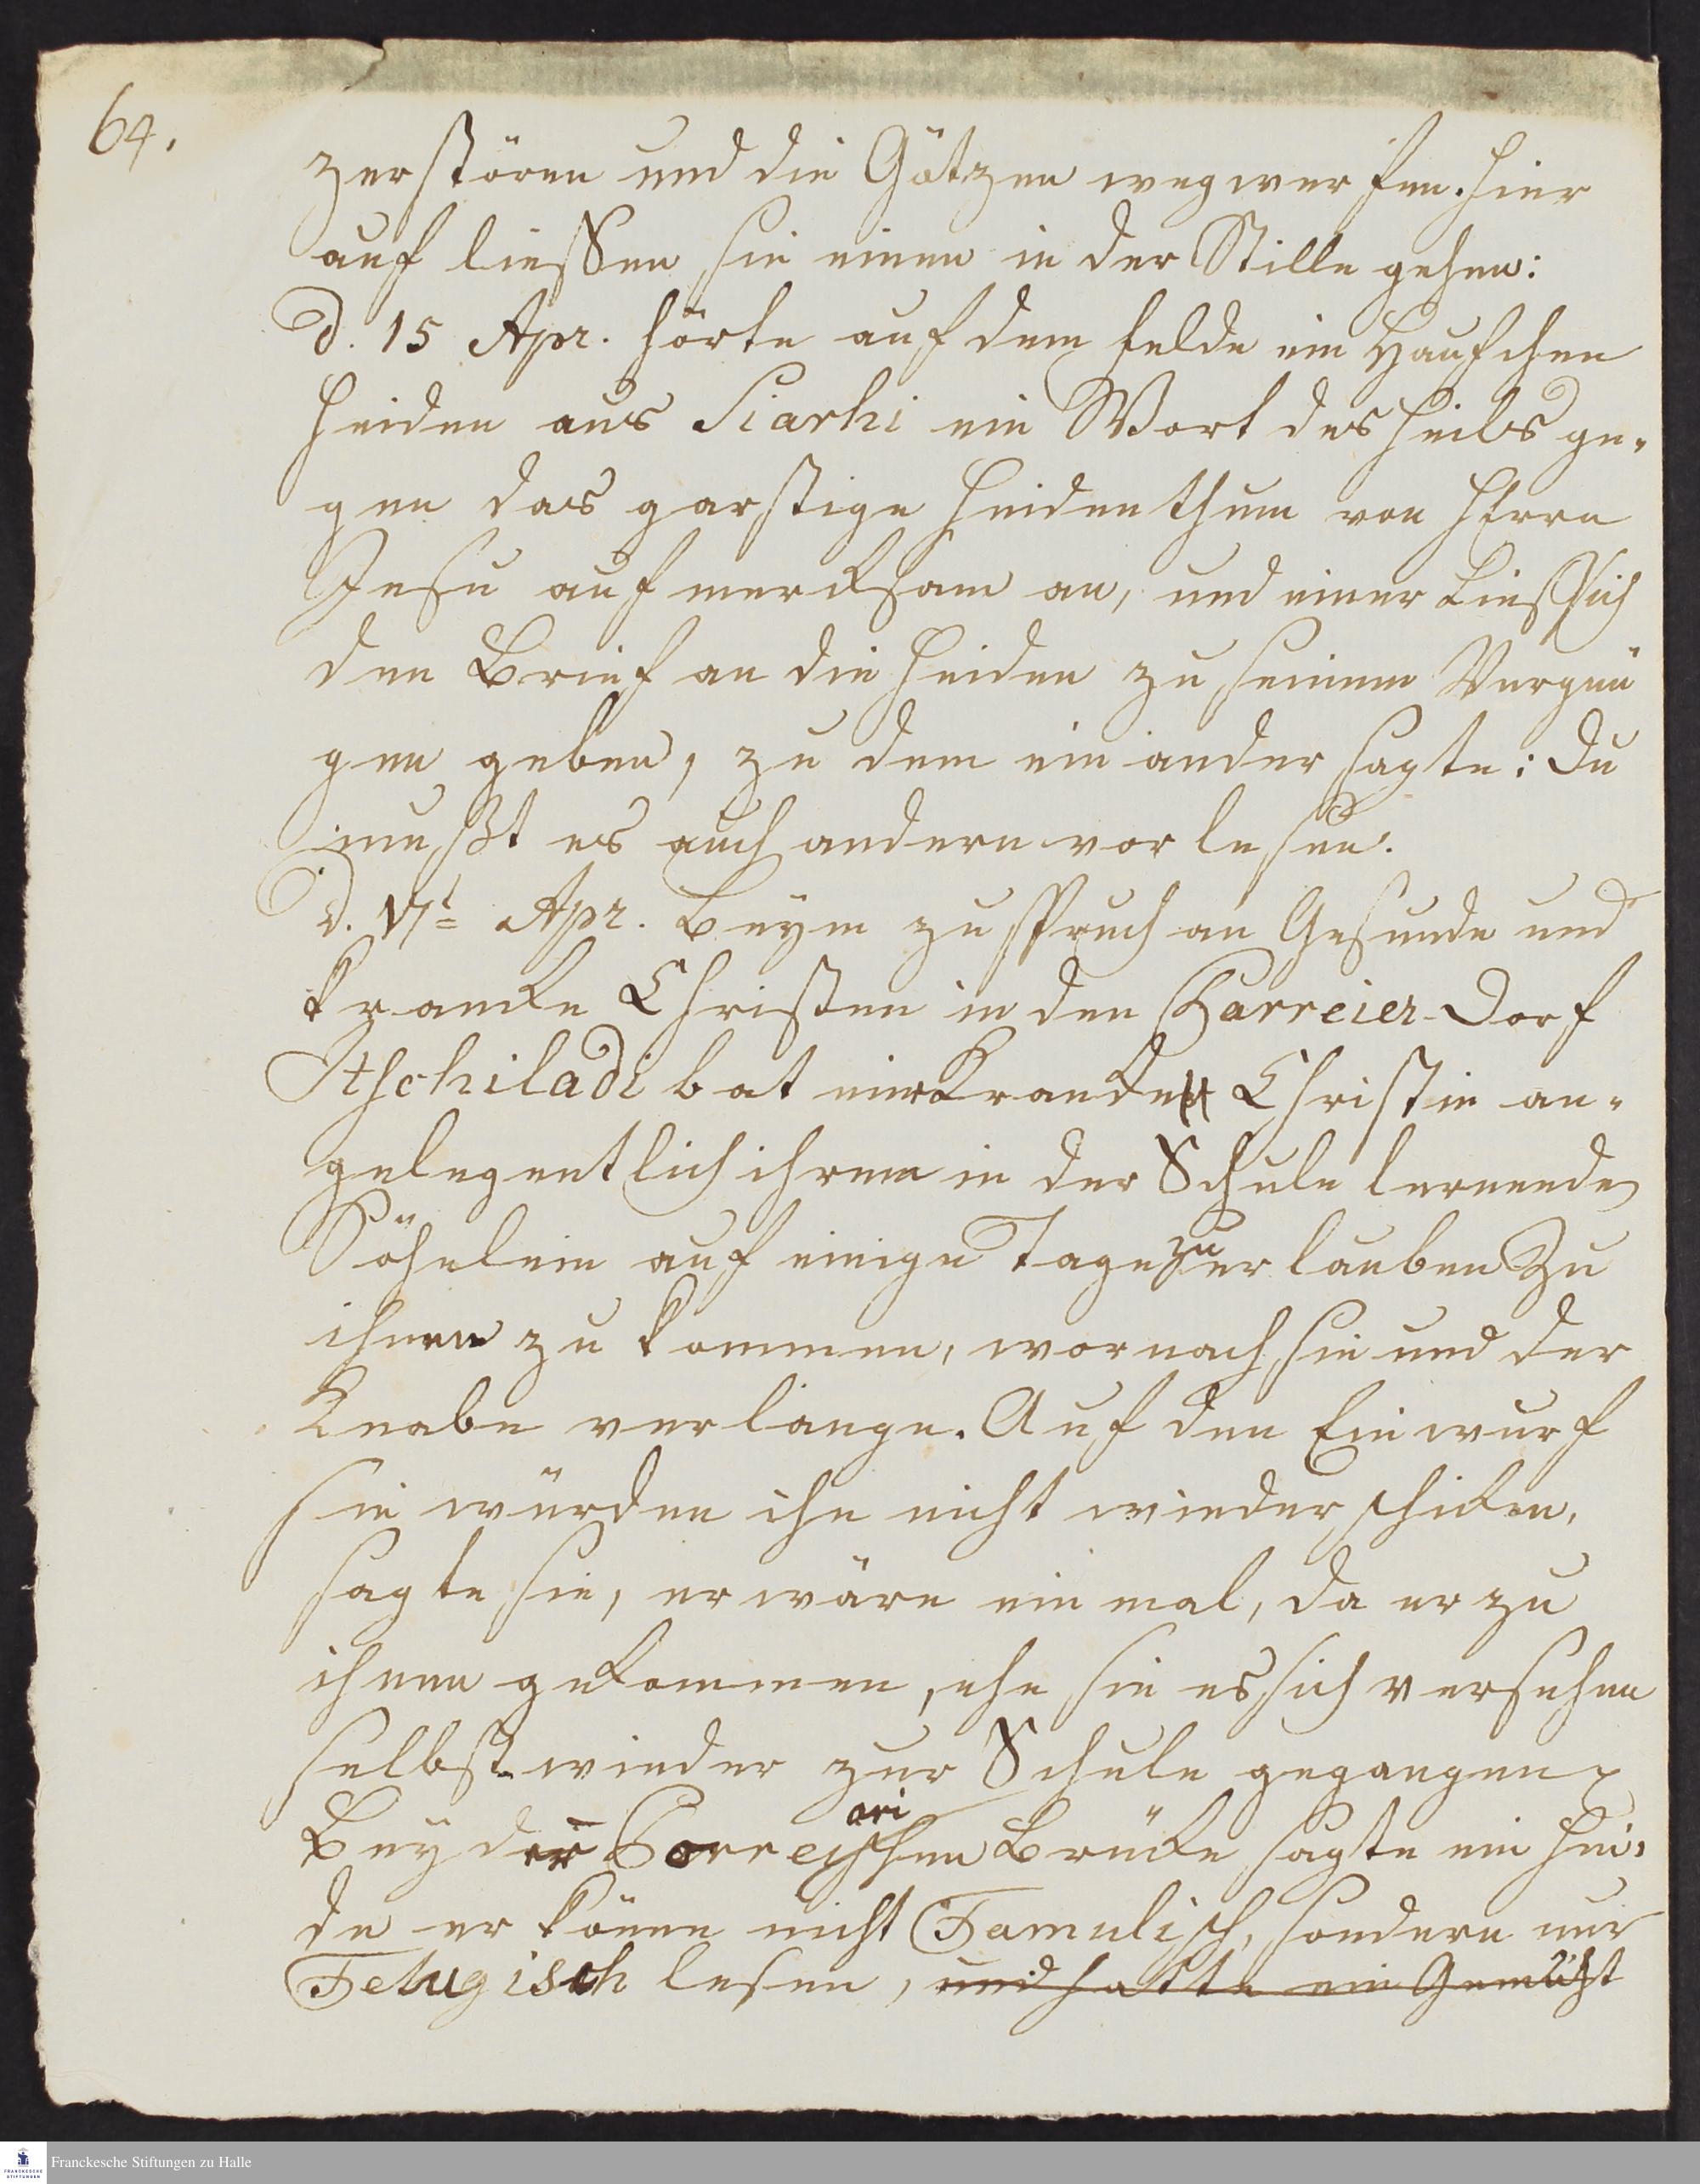 64.
zerstören und die Götzen wegwerfen. Hier
auf liessen sie einen in der Stille gehen:
D. 15 Apr. hörte auf dem Felde ein Haufchen
Heiden aus Siarhi ein Wort des Heils ge-
gen das garstige Heidenthum von HErrn
Jesu aufmercksam an, und einer liess sich
den Brief an die Heiden zu seinem Vergnü
gen geben, zu dem ein ander sagte: Du
mußt es auch andern vorlesen.
D. 17t Apr. Beym zuspruch an Gesunde und
krancke Christen in den Barreier-Dorf
Itschiladi bat eine Krancke Christin an-
gelegentlich ihrem in der Schule lernenden
Söhnlein auf einige Tage zu erlauben zu
ihnen zu kommen, wornach sie und der
Knabe verlange. Auf den Einwurf
sie würden ihn nicht wieder schicken,
sagte sie, er wäre einmal, da er zu
ihnen gekommen, ehe sie es sich versehen
selbst wieder zur Schule gegangen
ari
Bey der Porreischen Brücke sagte ein Hei-
de er könne nicht Tamulisch, sondern nur
Telugisch lesen, und hatte ein Gemüth